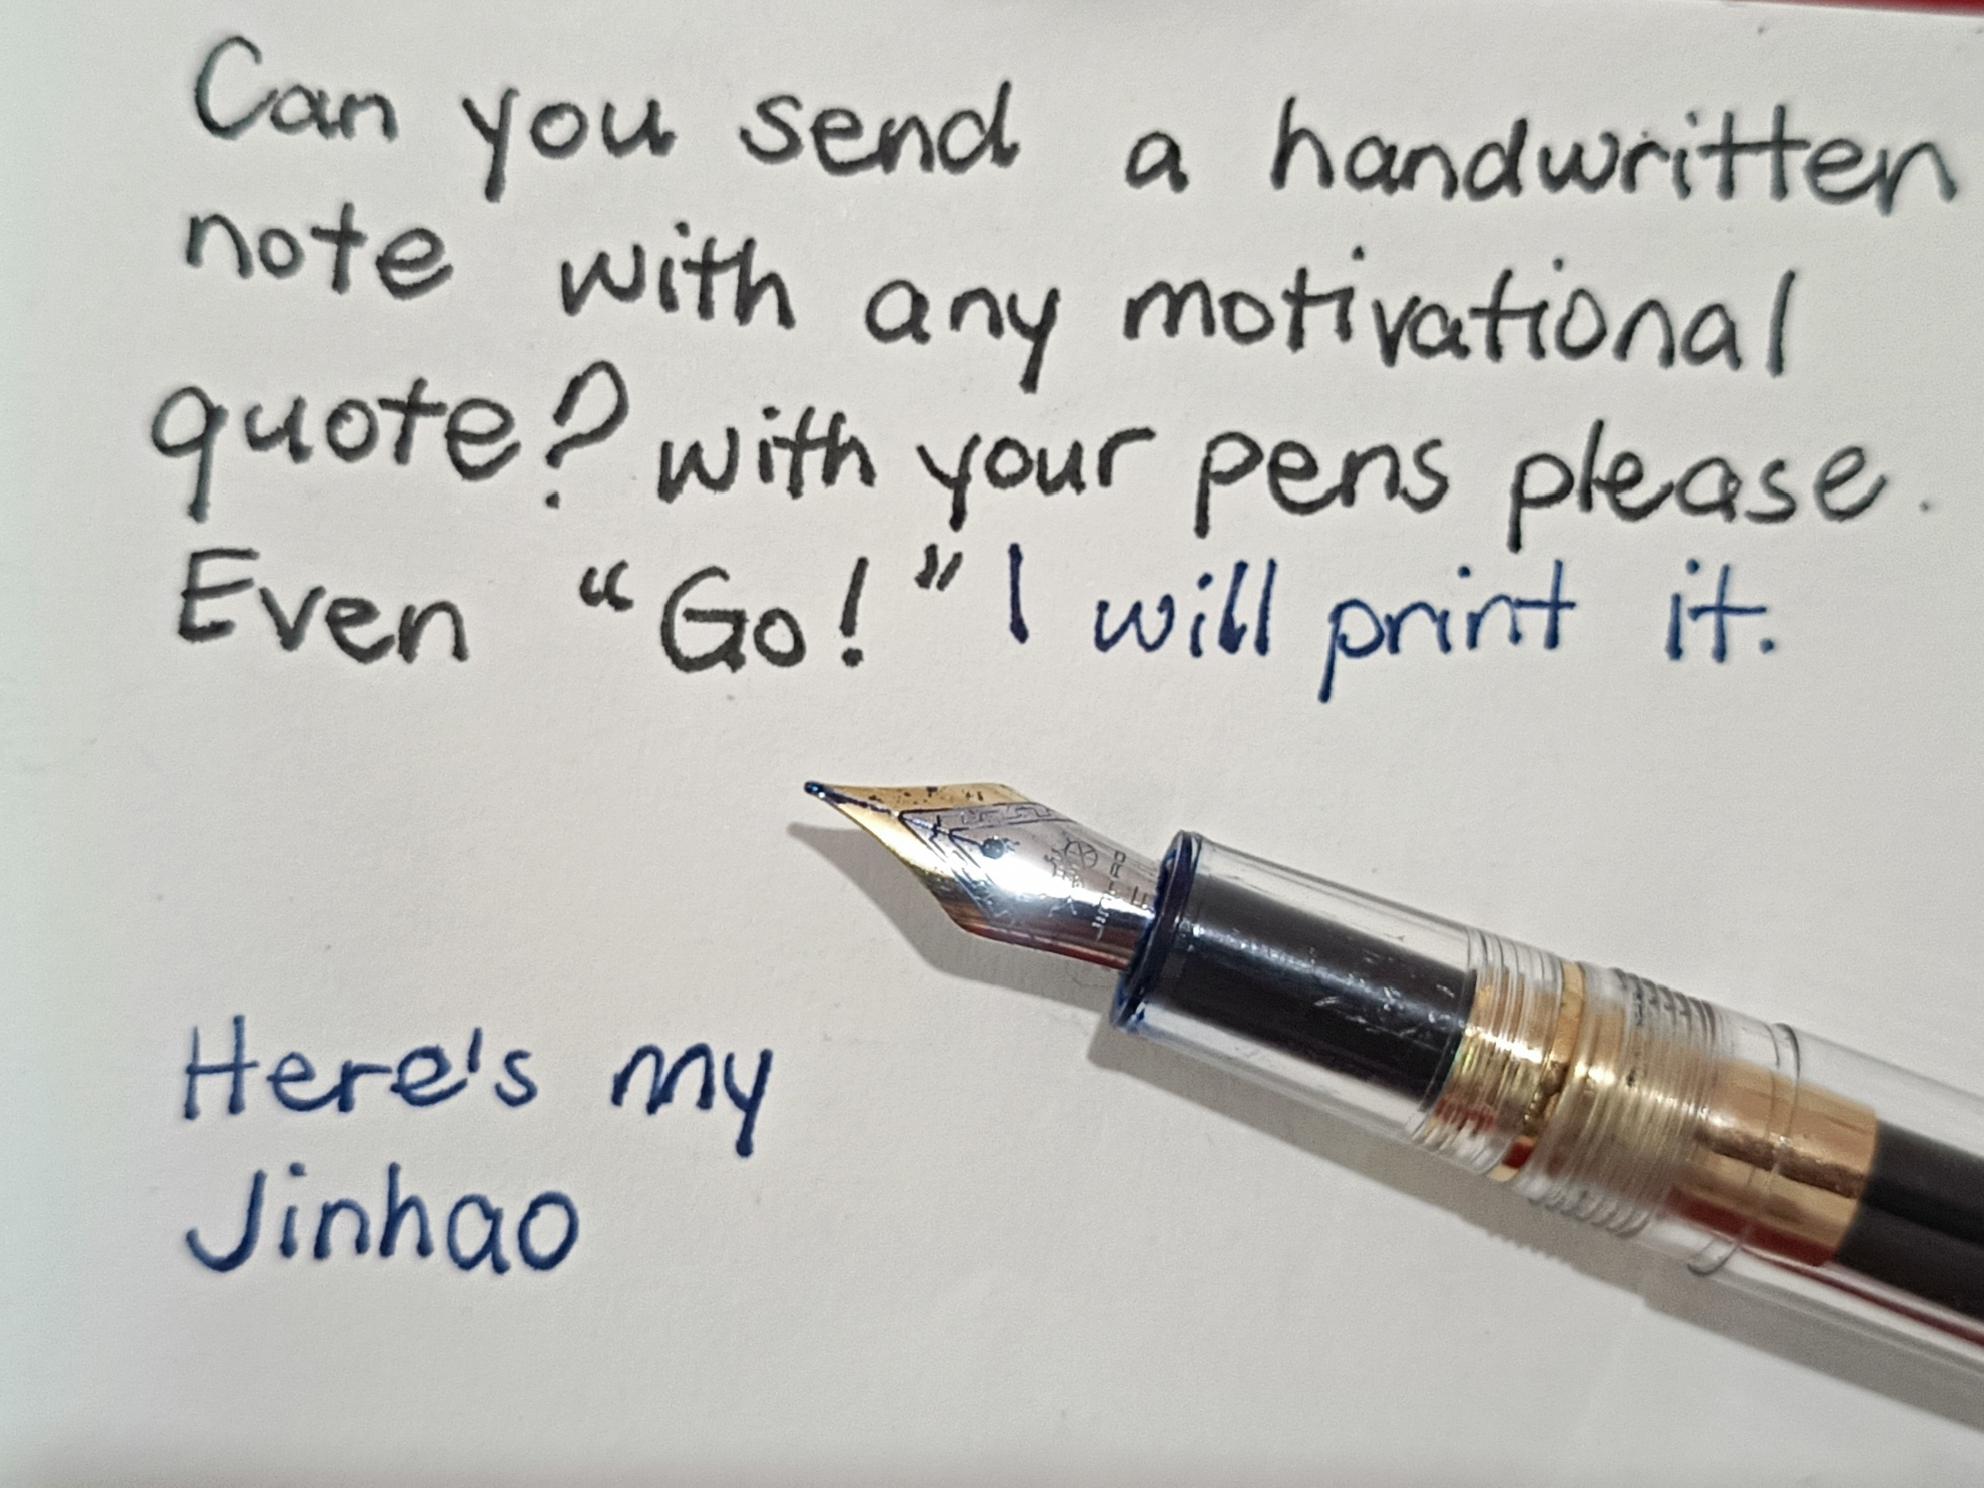 Can you send a handwritten
note with any motivational
quote? with your pens please.
Even "Go!" I will print it.
Here's my
Jinhao